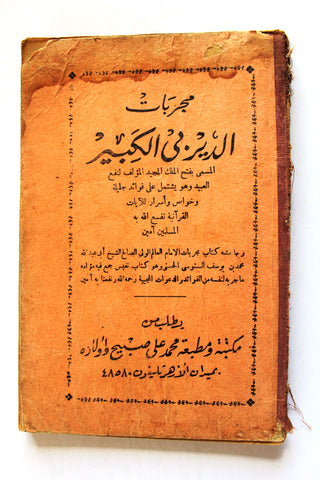 مجربات
الديربي الكبير
المسمى بفتح الملك المجيد المؤلف لنفع
العبيد وهو يشتمل على فوائد جليلة
وخواص وأسرار للآيات
القرآنية نفع الله به
المسلمين آمين
وبهامشه كتاب مجربات الامام العالم الولى الصالح الشيخ أبى عبد الله
محمد بن يوسف السنوسى الحسنى وهو كتاب نفيس جمع فيه مؤلفه
ماجربه لنفسه من الفوائد والدعوات المجيبة رحمه الله ونفعنا به آمين
يطلب من
مكتبة ومطبعة محمد على صبيح وأولاده
بميدان الأزهر تليفون ٤٨٥٨٠